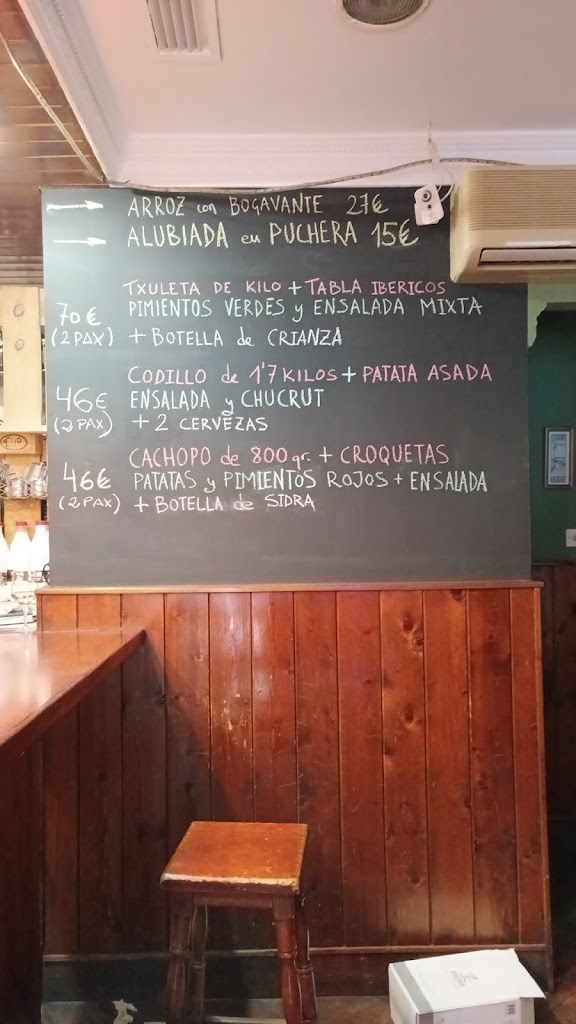 ARROZ con BOGAVANTE 27€
ALUBIADA en PUCHERA 15€
TXULETA DE KILO + TABLA IBERICOS
70€ PIMIENTOS VERDES y ENSALADA MIXTA
(2 PAX) + BOTELLA de CRIANZA
CODILLO de 1'7 KILOS + PATATA ASADA
46€ ENSALADA y CHUCRUT
(2 PAX) + 2 CERVEZAS
CACHOPO de 800 gr. + CROQUETAS
46€ PATATAS y PIMIENTOS ROJOS + ENSALADA
(2 PAX) + BOTELLA de SIDRA